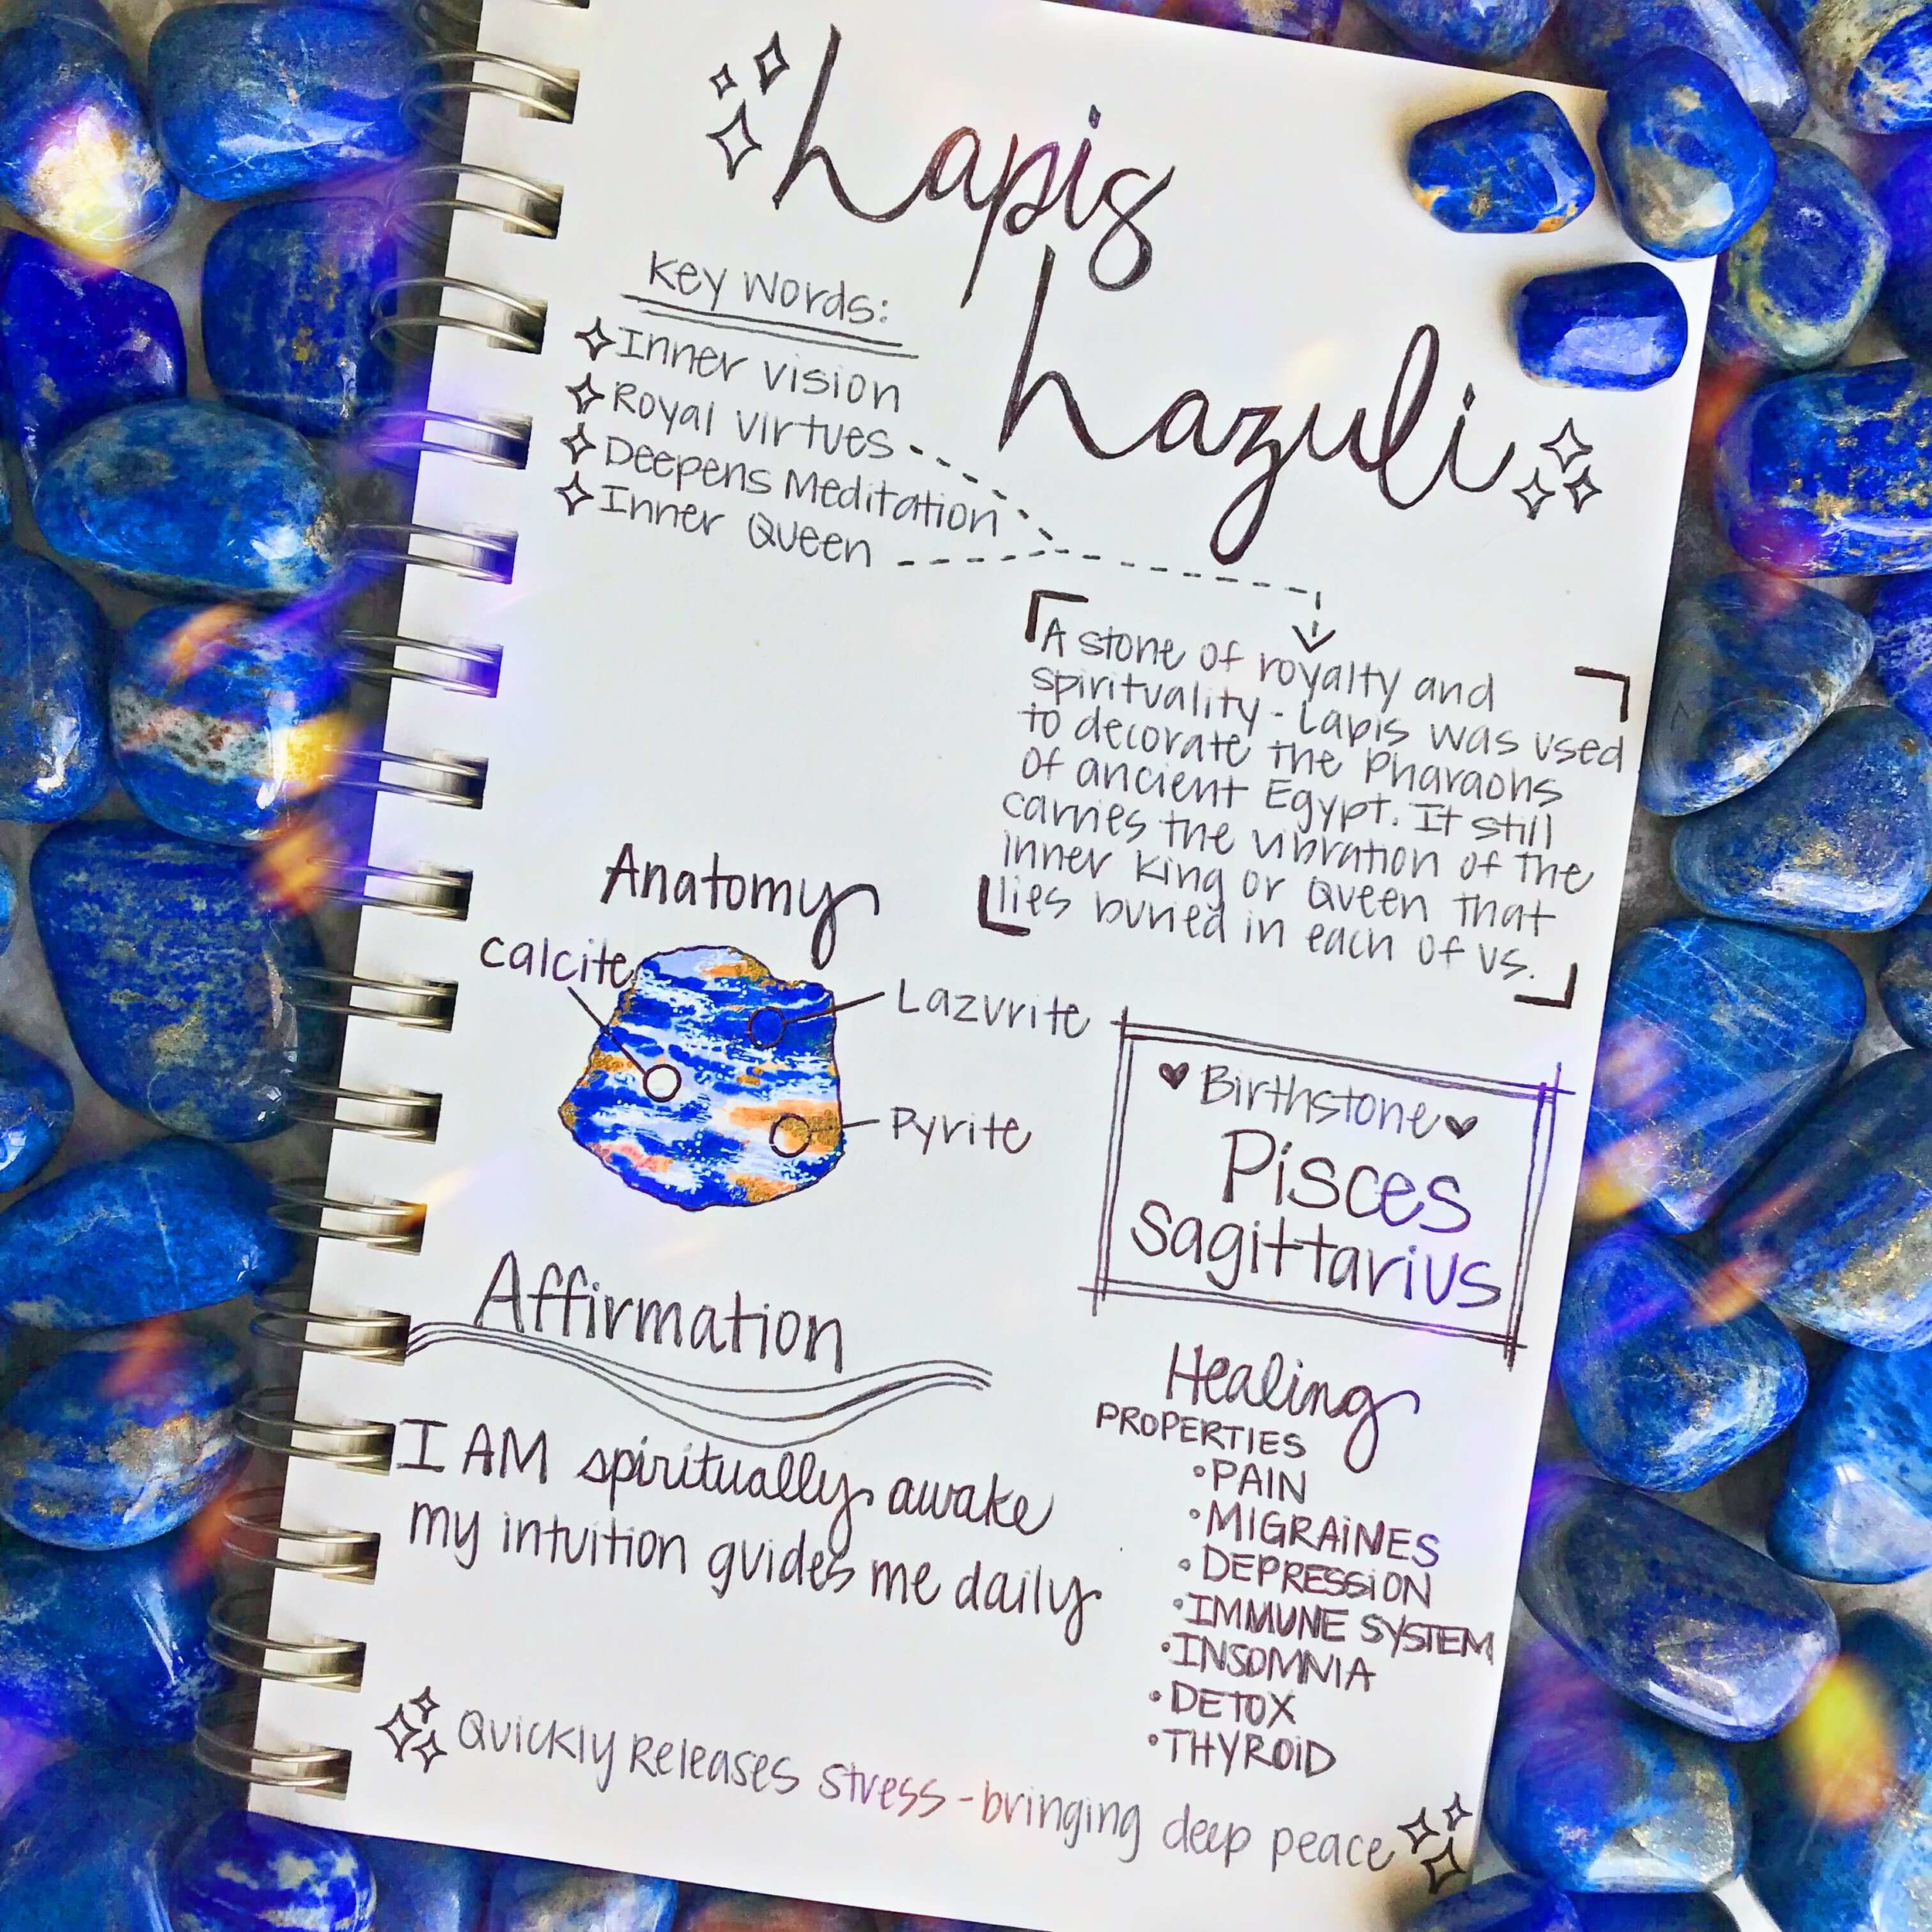 Lapis
Lazuli
Key Words:
Inner vision
Royal virtues
Deepens Meditation
Inner Queen
A stone of royalty and
spirituality - Lapis was used
to decorate the Pharaohs
of ancient Egypt. It still
carries the vibration of the
inner king or Queen that
lies buried in each of us.
Anatomy
Calcite
Lazurite
Pyrite
Birthstone
Pisces
Sagittarius
Affirmation
I AM spiritually awake
my intuition guides me daily
Healing
PROPERTIES
• PAIN
• MIGRAINES
• DEPRESSION
• IMMUNE SYSTEM
• INSOMNIA
• DETOX
• THYROID
Quickly Releases stress - bringing deep peace